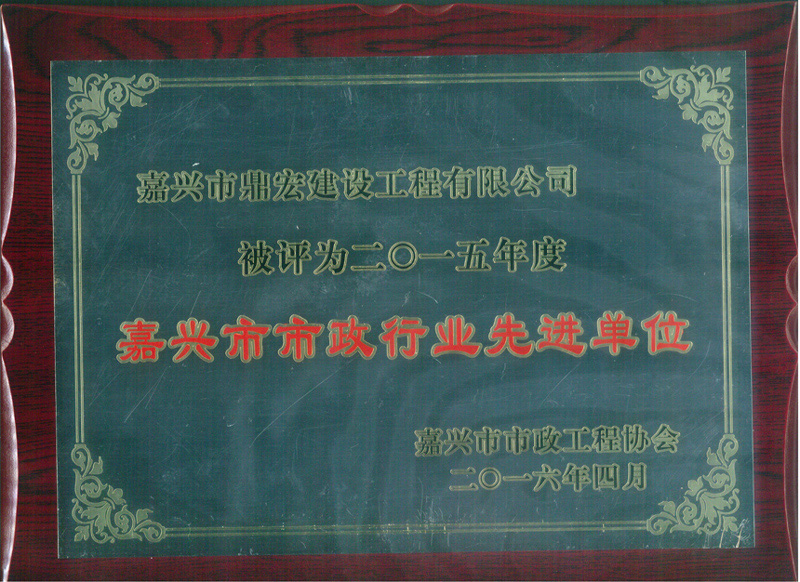 嘉兴市鼎宏建设工程有限公司
被评为二〇一五年度
嘉兴市市政行业先进单位
嘉兴市市政工程协会
二〇一六年四月